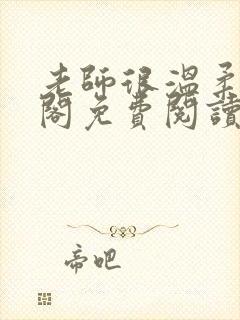 老師很溫柔
閣免費閱讀
帝吧